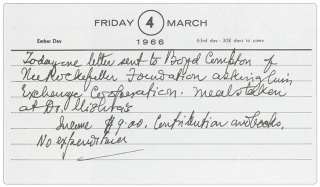 FRIDAY 4 MARCH
Ember Day 1966 63rd day - 302 days to come
Today one letter sent to Boyd Compton of
Rockefeller Foundation asking him
Exchange Cooperation. meals taken
at Dr. Mishra's
Income $9.00. Contribution and books.
No expenditure